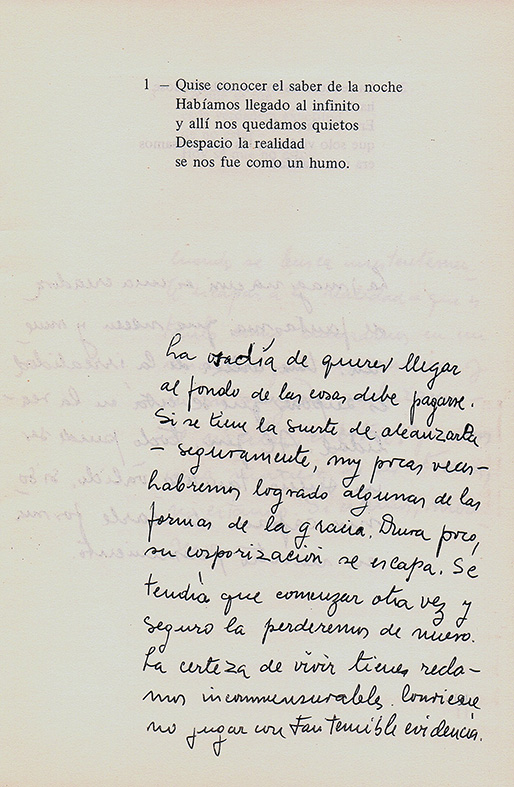 1 — Quise conocer el saber de la noche
Habíamos llegado al infinito
y allí nos quedamos quietos
Despacio la realidad
se nos fue como un humo.
La osadía de querer llegar
al fondo de las cosas debe pagarse.
Si se tiene la suerte de alcanzarla
– seguramente, muy pocas veces –
habremos logrado algunas de las
formas de la gracia. Dura poco,
su corporización se escapa. Se
tendría que comenzar otra vez y
seguro la perderemos de nuevo.
La certeza de vivir tienes recla-
mos inconmensurables. Conviene
no jugar con tan temible evidencia.